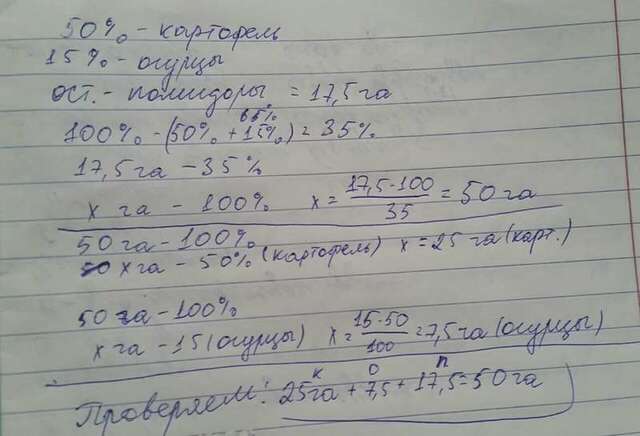 50% - картофель
15% - огурцы
ост. - помидоры = 17,5 га
65%
100% - (50% + 15%) = 35%
17,5 га - 35%
х га - 100% х = 17,5·100/35 = 50 га
50 га - 100%
х га - 50% (картофель) х = 25 га (карт.)
50 га - 100%
х га - 15 (огурцы) х = 15·50/100 = 7,5 га (огурцы)
к о п
Проверяем: 25 га + 7,5 + 17,5 = 50 га